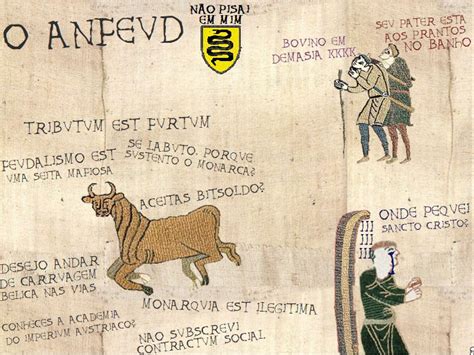 O ANFEUD
NÃO PISAI
EM MIM
BOVINO EM
DEMASIA KKKK
SEU PATER ESTA
AOS PRANTOS
NO BANHO
TRIBUTUM EST FURTUM
FEUDALISMO EST
UMA SEITA MAFIOSA
SE LABUTO, PORQUE
SUSTENTO O MONARCA?
ACEITAS BITSOLDO?
ONDE PEQUEI
SANCTO CRISTO?
DESEJO ANDAR
DE CARRUAGEM
BELICA NAS VIAS
MONARQUIA EST ILEGITIMA
CONHECES A ACADEMIA
DO IMPERIUM AUSTRIACO?
NÃO SUBSCREVI
CONTRACTUM SOCIAL